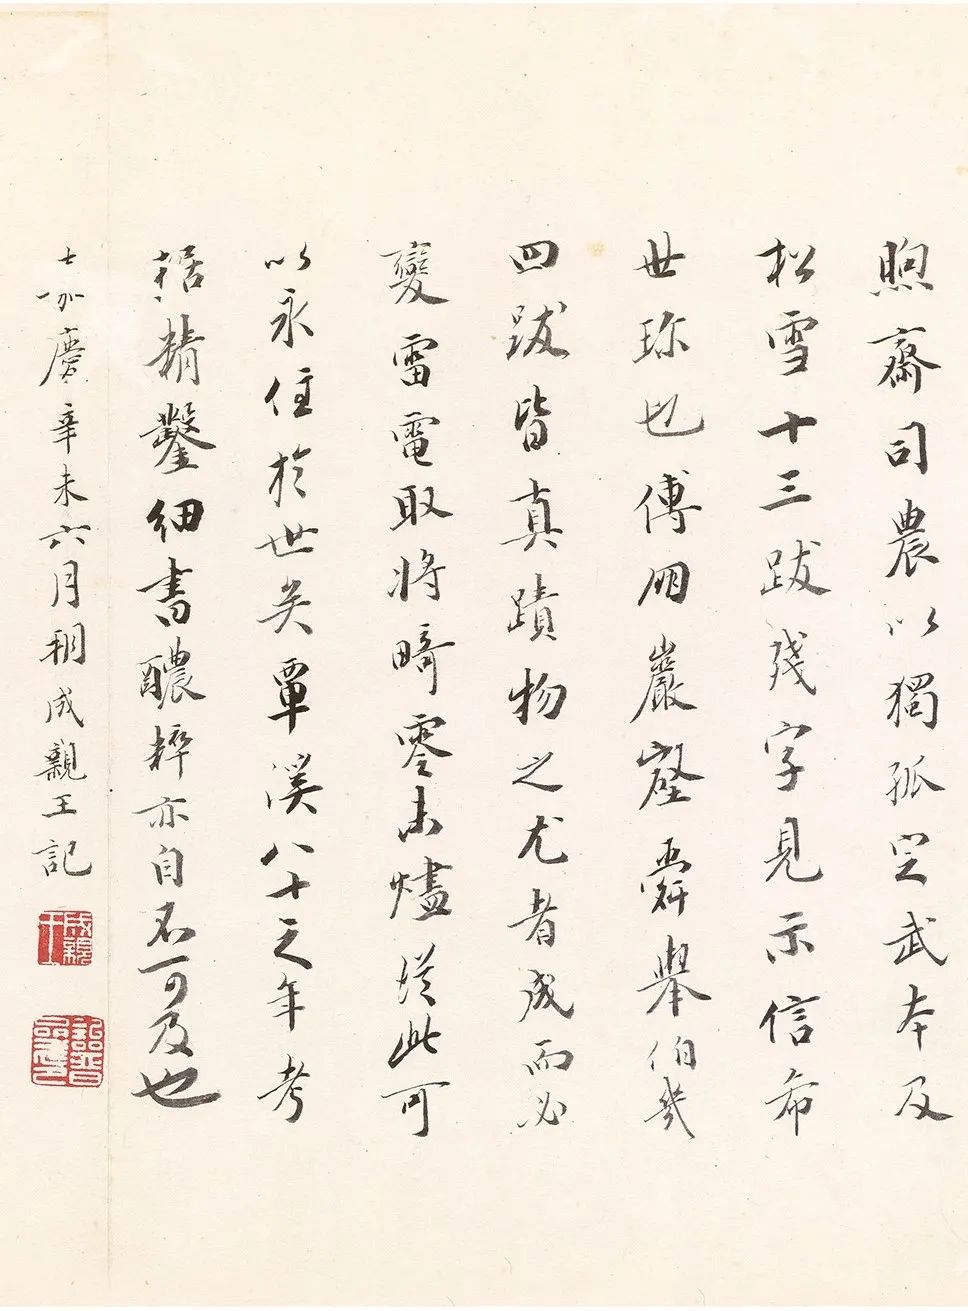 煦齋司農以獨孤定武本及
松雪十三跋殘字見示信希
世珎也傅朋巖壑舜舉伯幾
四跋皆真蹟物之尤者成而必
變雷電取將畸零未燼從此可
以永住於世矣覃溪八十之年考
据精鑿細書醲粹亦自不可及也
嘉慶辛未六月朔成親王記
成親王
詒晉齋印